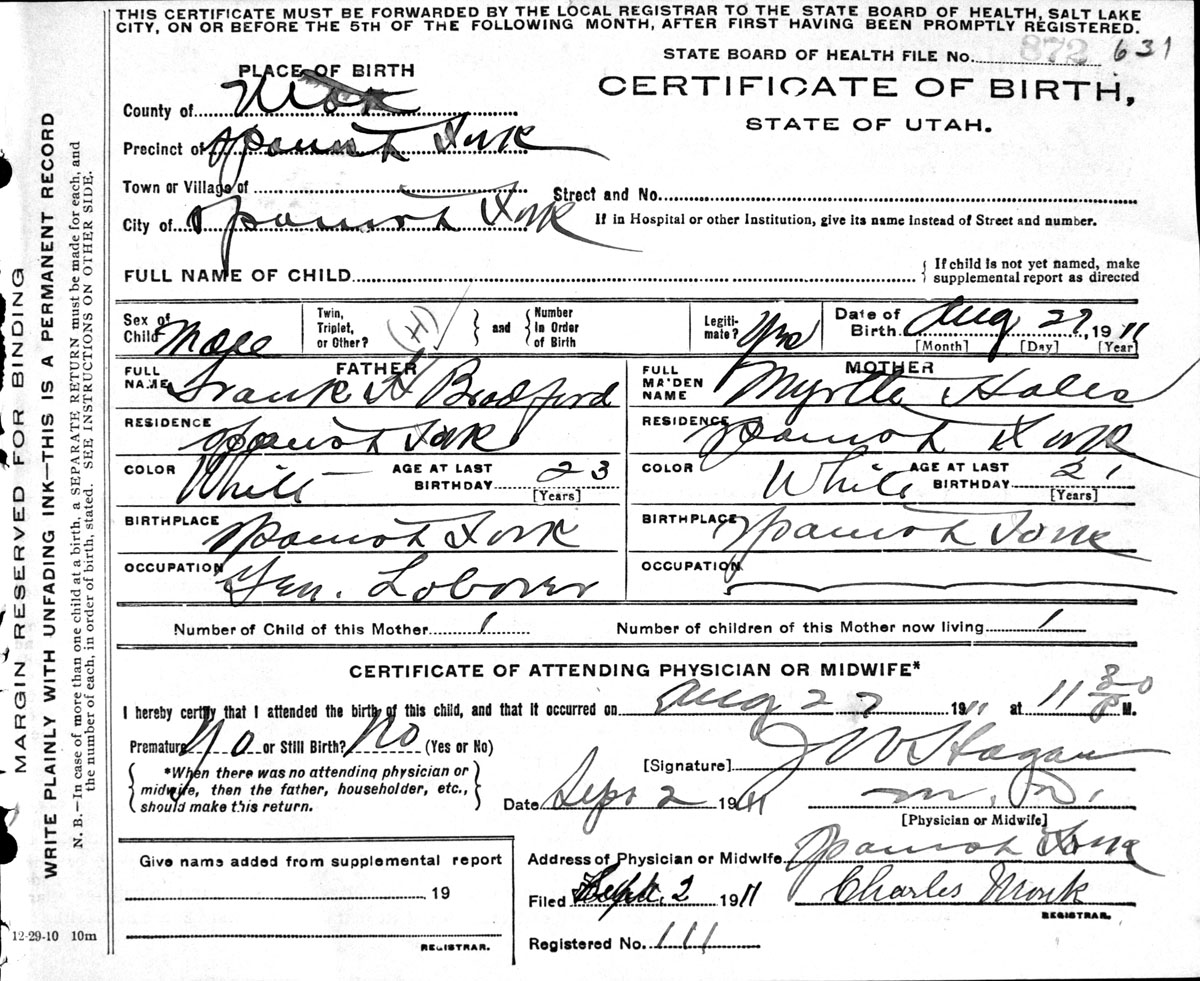 THIS CERTIFICATE MUST BE FORWARDED BY THE LOCAL REGISTRAR TO THE STATE BOARD OF HEALTH, SALT LAKE
CITY, ON OR BEFORE THE 5TH OF THE FOLLOWING MONTH, AFTER FIRST HAVING BEEN PROMPTLY REGISTERED.
STATE BOARD OF HEALTH FILE No. 872 631
PLACE OF BIRTH
CERTIFICATE OF BIRTH,
STATE OF UTAH.
County of Utah
Precinct of Spanish Fork
Town or Village of
Street and No.
City of Spanish Fork
If in Hospital or other Institution, give its name instead of Street and number.
FULL NAME OF CHILD
{ If child is not yet named, make supplemental report as directed
Sex of Child Male
Twin, Triplet, or Other? } and { Number In Order of Birth
(H)
Legitimate? Yes
Date of Birth Aug 27, 1911
[Month] [Day] [Year]
FATHER
FULL NAME Frank H Bradford
RESIDENCE Spanish Fork
COLOR White AGE AT LAST BIRTHDAY 23
[Years]
BIRTHPLACE Spanish Fork
OCCUPATION Gen. Laborer
MOTHER
FULL MAIDEN NAME Myrtle Hales
RESIDENCE Spanish Fork
COLOR White AGE AT LAST BIRTHDAY 21
[Years]
BIRTHPLACE Spanish Fork
OCCUPATION
Number of Child of this Mother 1 Number of children of this Mother now living 1
CERTIFICATE OF ATTENDING PHYSICIAN OR MIDWIFE*
I hereby certify that I attended the birth of this child, and that it occurred on Aug 27 1911 at 11 30 P M.
Premature No or Still Birth? No (Yes or No)
{ *When there was no attending physician or
midwife, then the father, householder, etc.,
should make this return. }
[Signature] J W Hagan
Date Sept 2 1911 M. D.
[Physician or Midwife]
Give name added from supplemental report
19
REGISTRAR.
Address of Physician or Midwife Spanish Fork
Filed Sept. 2 1911 Charles Monk
REGISTRAR.
Registered No. 111
12-29-10 10m
MARGIN RESERVED FOR BINDING
WRITE PLAINLY WITH UNFADING INK—THIS IS A PERMANENT RECORD
N. B.—In case of more than one child at a birth, a SEPARATE RETURN must be made for each, and
the number of each, in order of birth, stated. SEE INSTRUCTIONS ON OTHER SIDE.